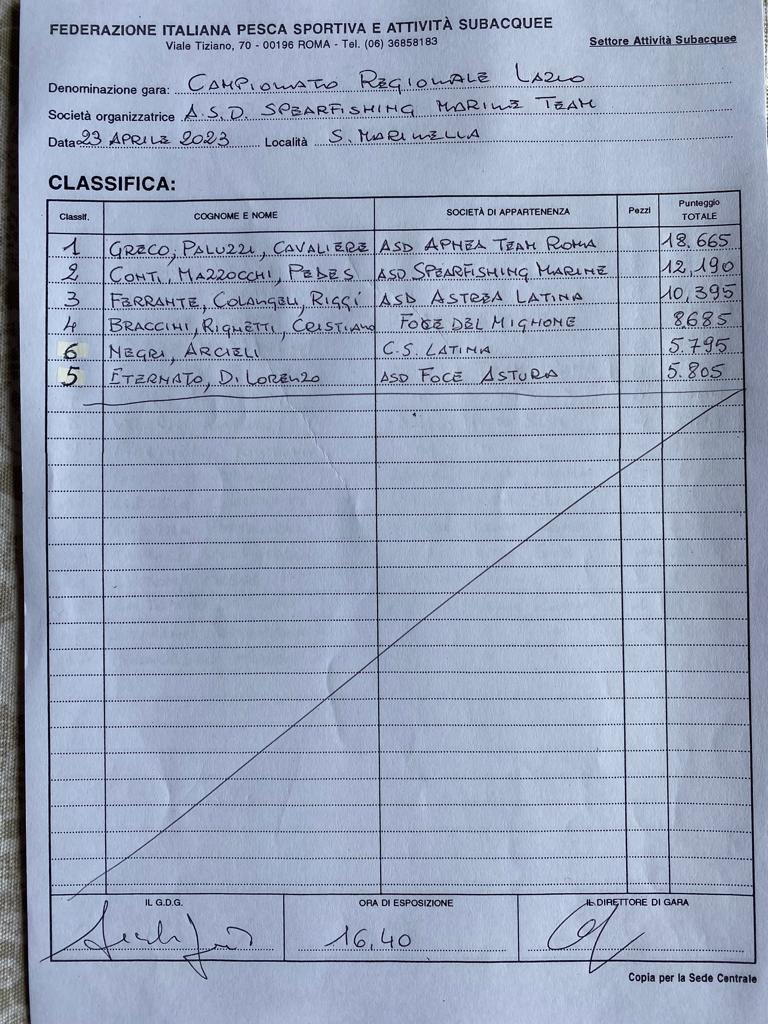 FEDERAZIONE ITALIANA PESCA SPORTIVA E ATTIVITÀ SUBACQUEE
Viale Tiziano, 70 - 00196 ROMA - Tel. (06) 36858183
Settore Attività Subacquee
Denominazione gara: CAMPIONATO REGIONALE LAZIO
Società organizzatrice A.S.D. SPEARFISHING MARINE TEAM
Data 23 APRILE 2023 Località S. MARINELLA
CLASSIFICA:
Classif. COGNOME E NOME SOCIETÀ DI APPARTENENZA Pezzi Punteggio TOTALE
1 GRECO, PALUZZI, CAVALIERE ASD APNEA TEAM ROMA 18,665
2 CONTI, MAZZOCCHI, PEDES ASD SPEARFISHING MARINE 12,190
3 FERRANTE, COLANGELI, RIGGI ASD ASTREA LATINA 10,395
4 BRACCINI, RIGHETTI, CRISTIANO FOCE DEL MIGNONE 8685
6 NEGRI, ARCIELI C.S. LATINA 5.795
5 ETERNATO, DI LORENZO ASD FOCE ASTURA 5.805
IL G.D.G. ORA DI ESPOSIZIONE IL DIRETTORE DI GARA
16,40
Copia per la Sede Centrale